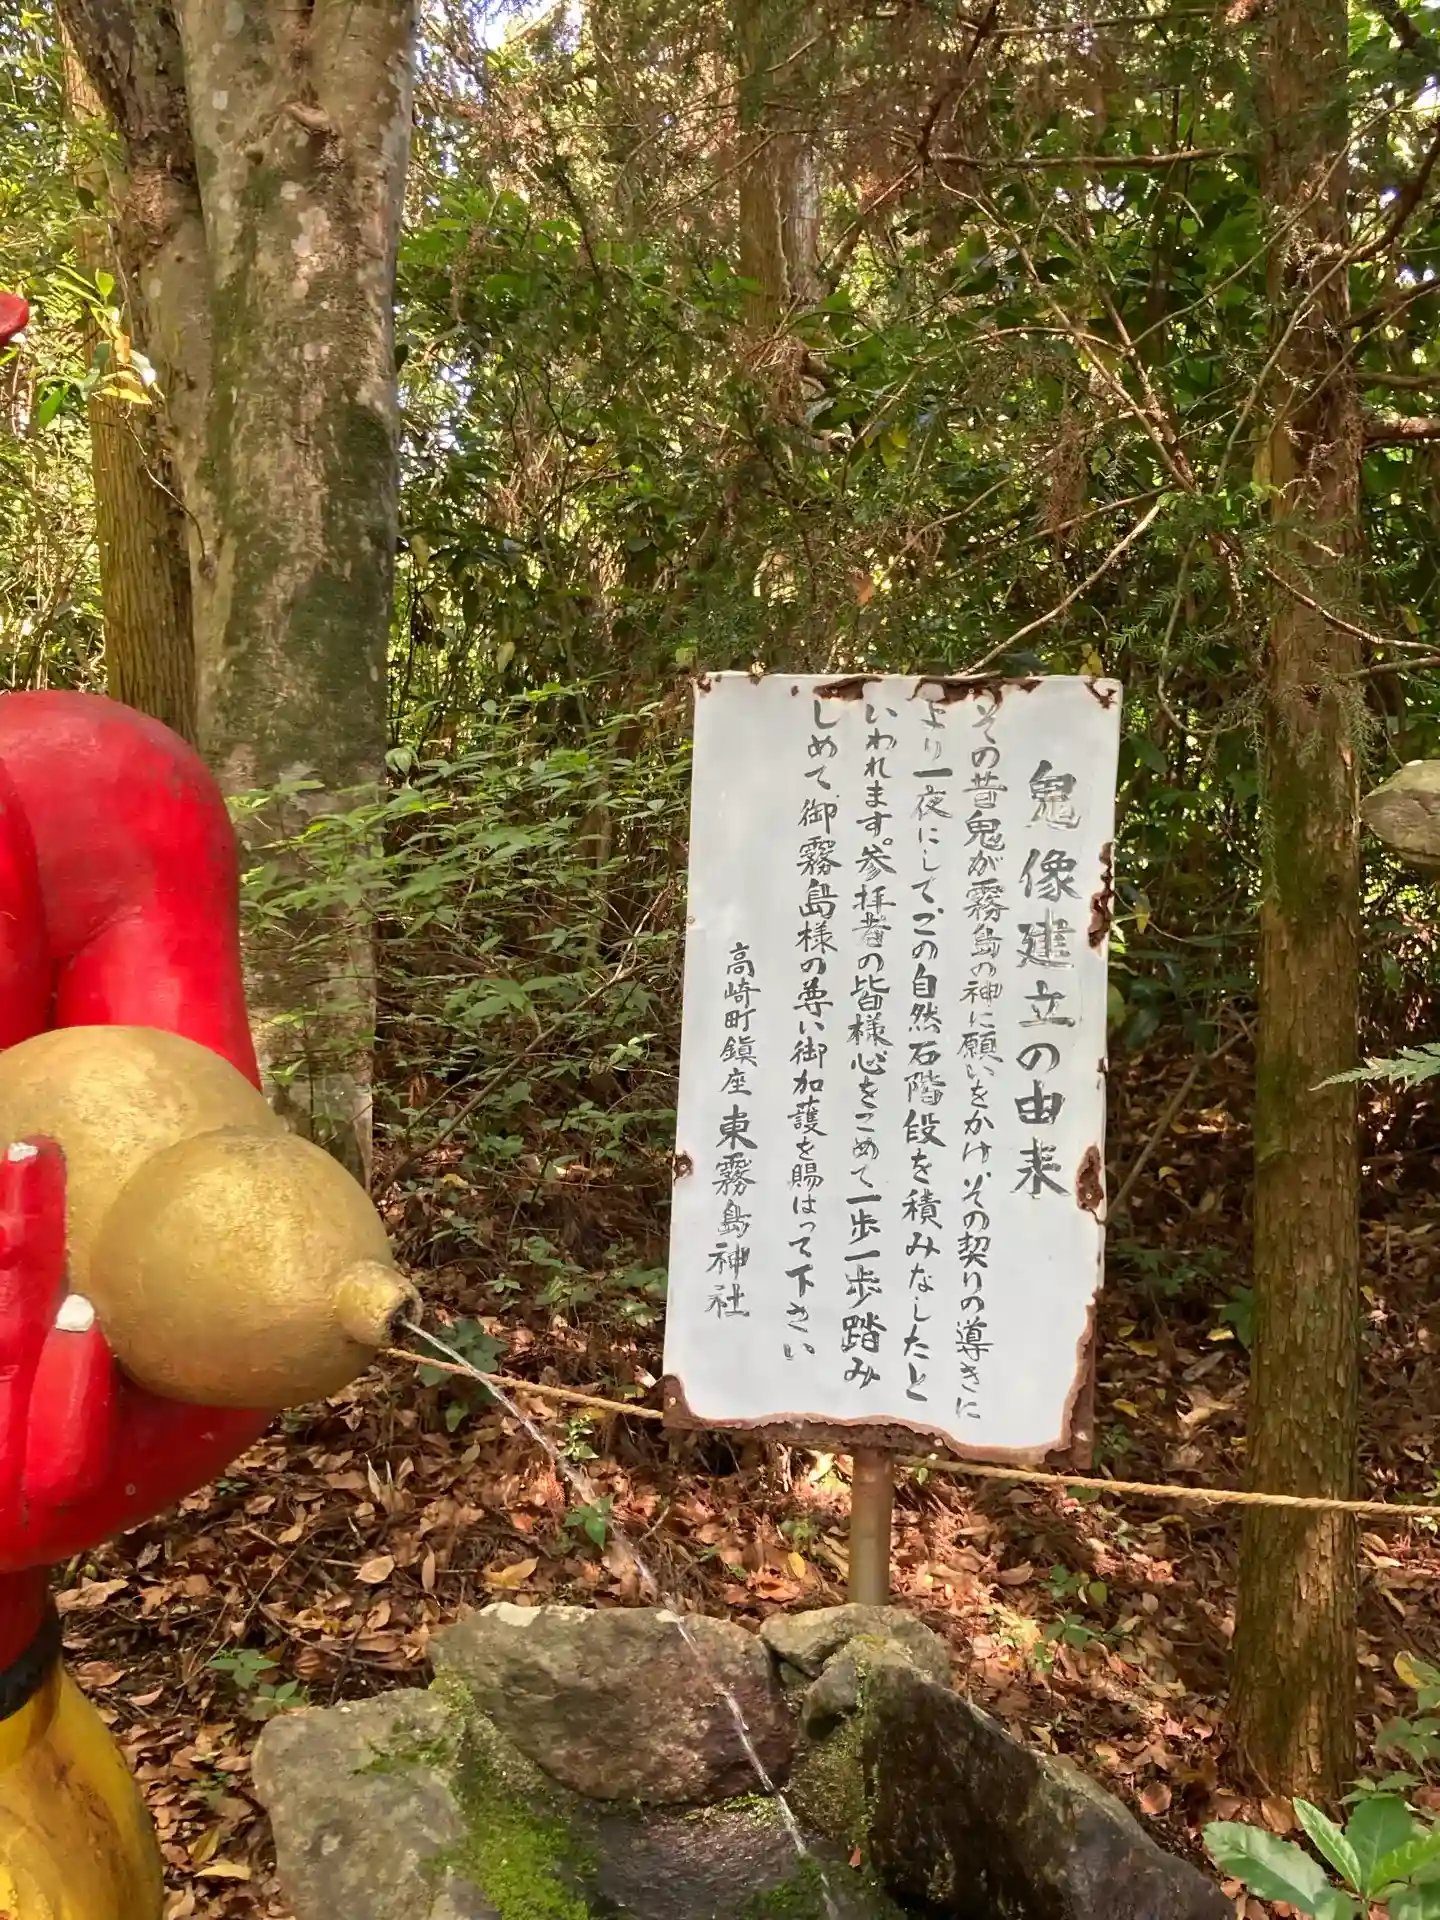 鬼像建立の由来
その昔鬼が霧島の神に願いをかけ、その契りの導きに
より一夜にしてこの自然石階段を積みなしたと
いわれます。参拝者の皆様心をこめて一歩一歩踏み
しめて御霧島様の尊い御加護を賜はって下さい
高崎町鎮座東霧島神社